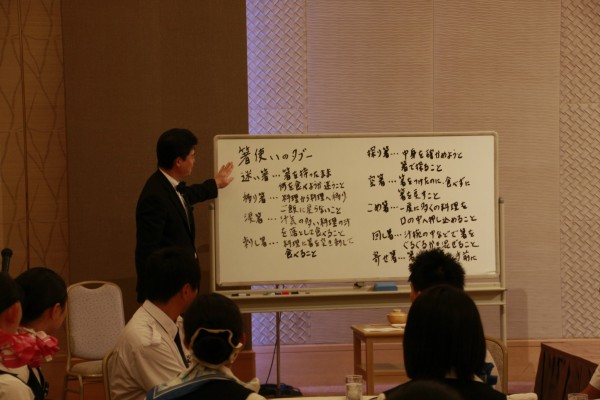 箸使いのタブー
迷い箸…箸を持ったまま
何を食べようか迷うこと
移り箸…料理から料理へ移り
ご飯に戻らないこと
涙箸…汁気の多い料理の汁
を落として食べること
刺し箸…料理に箸を突き刺して
食べること
探り箸…中身を確かめようと
箸で探ること
空箸…箸をつけたのに、食べずに
箸を戻すこと
こめ箸…一度に多くの料理を
口の中へ押し込めること
回し箸…汁椀の中などで箸を
ぐるぐるかき混ぜること
寄せ箸…箸
前に